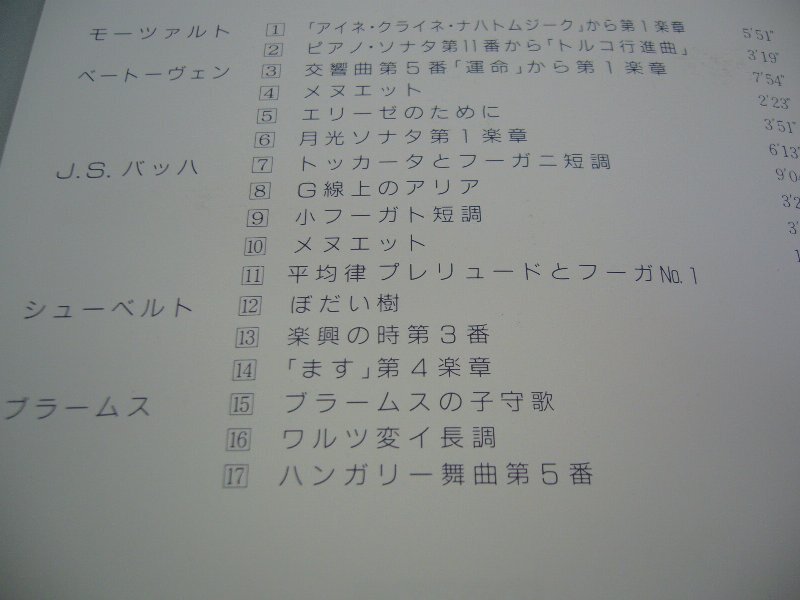 モーツァルト 1 「アイネ・クライネ・ナハトムジーク」から第1楽章 5'51"
2 ピアノ・ソナタ第11番から「トルコ行進曲」 3'19"
ベートーヴェン 3 交響曲第5番「運命」から第1楽章 7'54"
4 メヌエット 2'23"
5 エリーゼのために 3'51"
6 月光ソナタ第1楽章 6'13"
J.S.バッハ 7 トッカータとフーガニ短調
8 G線上のアリア
9 小フーガト短調
10 メヌエット
11 平均律 プレリュードとフーガNo.1
シューベルト 12 ぼだい樹
13 楽興の時第3番
14 「ます」第4楽章
ブラームス 15 ブラームスの子守歌
16 ワルツ変イ長調
17 ハンガリー舞曲第5番